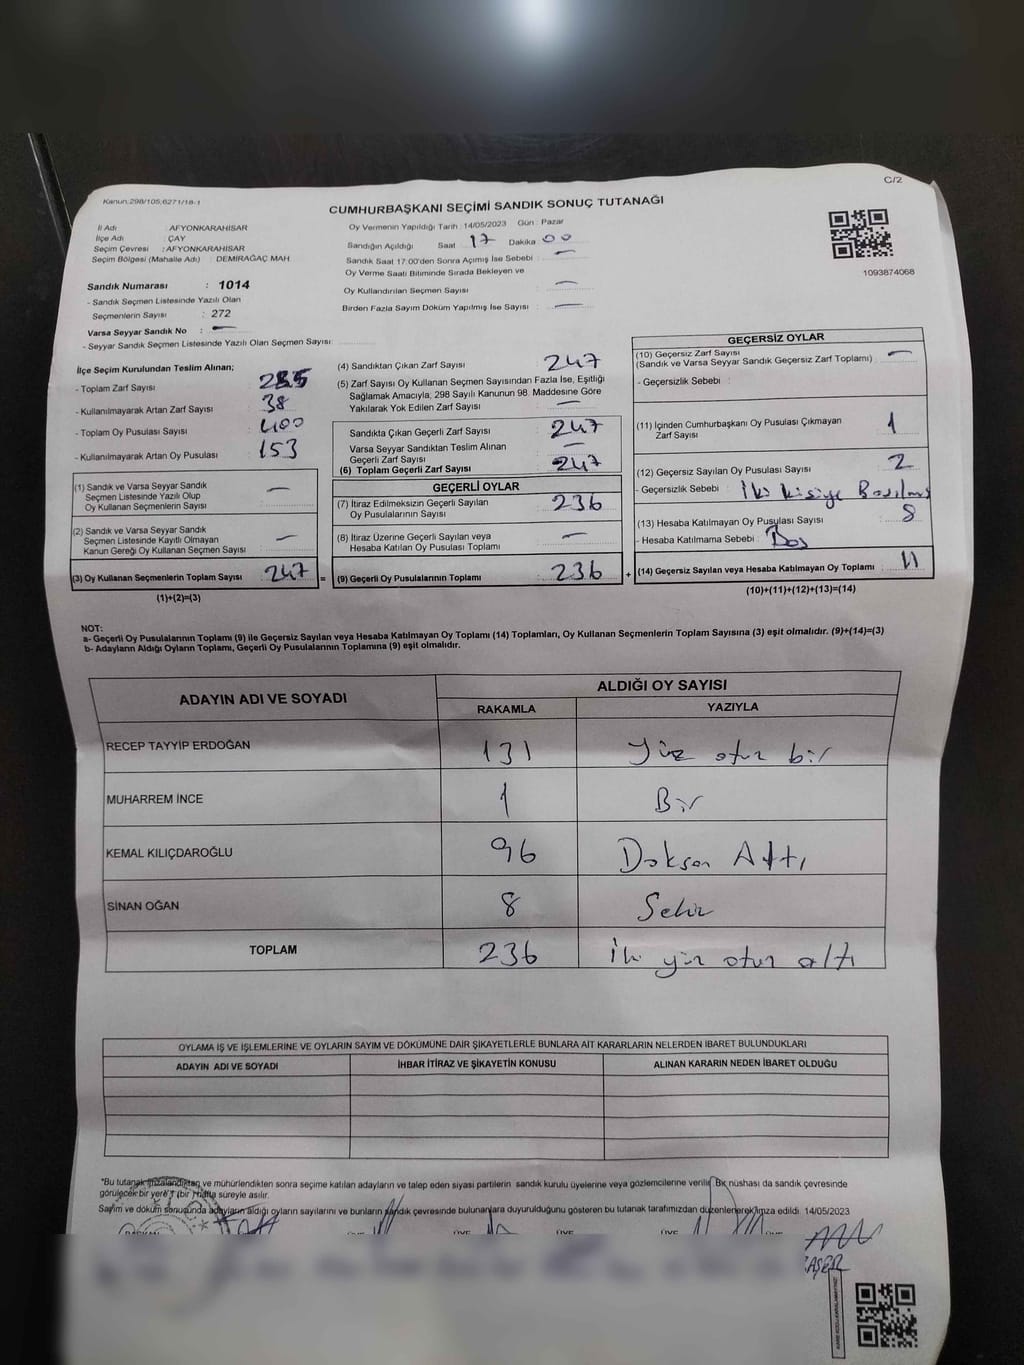 C/2
Kanun,298/105,6271/18-1
CUMHURBAŞKANI SEÇİMİ SANDIK SONUÇ TUTANAĞI
İl Adı : AFYONKARAHISAR
İlçe Adı : ÇAY
Seçim Çevresi : AFYONKARAHISAR
Seçim Bölgesi (Mahalle Adı) : DEMIRAĞAÇ MAH
Sandık Numarası : 1014
- Sandık Seçmen Listesinde Yazılı Olan
Seçmenlerin Sayısı : 272
Varsa Seyyar Sandık No : —
- Seyyar Sandık Seçmen Listesinde Yazılı Olan Seçmen Sayısı:
Oy Vermenin Yapıldığı Tarih : 14/05/2023 Gün : Pazar
Sandığın Açıldığı Saat 17 Dakika 00
Sandık Saat 17.00'den Sonra Açımış İse Sebebi : —
Oy Verme Saati Bitiminde Sırada Bekleyen ve
Oy Kullandırılan Seçmen Sayısı : —
Birden Fazla Sayım Döküm Yapılmış İse Sayısı : —
1093874068
İlçe Seçim Kurulundan Teslim Alınan;
- Toplam Zarf Sayısı : 285
- Kullanılmayarak Artan Zarf Sayısı : 38
- Toplam Oy Pusulası Sayısı : 400
- Kullanılmayarak Artan Oy Pusulası : 153
(1) Sandık ve Varsa Seyyar Sandık
Seçmen Listesinde Yazılı Olup
Oy Kullanan Seçmenlerin Sayısı : —
(2) Sandık ve Varsa Seyyar Sandık
Seçmen Listesinde Kayıtlı Olmayan
Kanun Gereği Oy Kullanan Seçmen Sayısı : —
(3) Oy Kullanan Seçmenlerin Toplam Sayısı : 247 =
(1)+(2)=(3)
(4) Sandıktan Çıkan Zarf Sayısı : 247
(5) Zarf Sayısı Oy Kullanan Seçmen Sayısından Fazla İse, Eşitliği
Sağlamak Amacıyla, 298 Sayılı Kanunun 98. Maddesine Göre
Yakılarak Yok Edilen Zarf Sayısı : —
Sandıkta Çıkan Geçerli Zarf Sayısı : 247
Varsa Seyyar Sandıktan Teslim Alınan
Geçerli Zarf Sayısı : —
(6) Toplam Geçerli Zarf Sayısı : 247
GEÇERLİ OYLAR
(7) İtiraz Edilmeksizin Geçerli Sayılan
Oy Pusulalarının Sayısı : 236
(8) İtiraz Üzerine Geçerli Sayılan veya
Hesaba Katılan Oy Pusulası Toplamı : —
(9) Geçerli Oy Pusulalarının Toplamı : 236 +
GEÇERSİZ OYLAR
(10) Geçersiz Zarf Sayısı
(Sandık ve Varsa Seyyar Sandık Geçersiz Zarf Toplamı) : —
- Geçersizlik Sebebi :
(11) İçinden Cumhurbaşkanı Oy Pusulası Çıkmayan
Zarf Sayısı : 1
(12) Geçersiz Sayılan Oy Pusulası Sayısı : 2
- Geçersizlik Sebebi : İki kişiye Basılmış
(13) Hesaba Katılmayan Oy Pusulası Sayısı : 8
- Hesaba Katılmama Sebebi : Boş
(14) Geçersiz Sayılan veya Hesaba Katılmayan Oy Toplamı : 11
(10)+(11)+(12)+(13)=(14)
NOT:
a- Geçerli Oy Pusulalarının Toplamı (9) ile Geçersiz Sayılan veya Hesaba Katılmayan Oy Toplamı (14) Toplamları, Oy Kullanan Seçmenlerin Toplam Sayısına (3) eşit olmalıdır. (9)+(14)=(3)
b- Adayların Aldığı Oyların Toplamı, Geçerli Oy Pusulalarının Toplamına (9) eşit olmalıdır.
ADAYIN ADI VE SOYADI ALDIĞI OY SAYISI
RAKAMLA YAZIYLA
RECEP TAYYİP ERDOĞAN 131 Yüz otuz bir
MUHARREM İNCE 1 Bir
KEMAL KILIÇDAROĞLU 96 Doksan Altı
SİNAN OĞAN 8 Sekiz
TOPLAM 236 İki yüz otuz altı
OYLAMA İŞ VE İŞLEMLERİNE VE OYLARIN SAYIM VE DÖKÜMÜNE DAİR ŞİKAYETLERLE BUNLARA AİT KARARLARIN NELERDEN İBARET BULUNDUKLARI
ADAYIN ADI VE SOYADI İHBAR İTİRAZ VE ŞİKAYETİN KONUSU ALINAN KARARIN NEDEN İBARET OLDUĞU
"Bu tutanak imzalandıktan ve mühürlendikten sonra seçime katılan adayların ve talep eden siyasi partilerin sandık kurulu üyelerine veya gözlemcilerine verilir. Bir nüshası da sandık çevresinde
görülecek bir yere 1 (bir) hafta süreyle asılır.
Sayım ve döküm sonucunda adayların aldığı oyların sayılarını ve bunların sandık çevresinde bulunanlara duyurulduğunu gösteren bu tutanak tarafımızdan düzenlenerek imza edildi. 14/05/2023
BAŞKAN ÜYE ÜYE ÜYE ÜYE